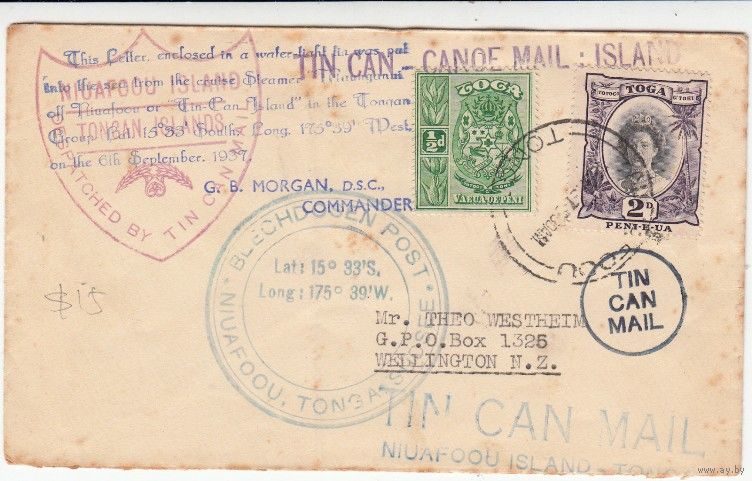 This Letter, enclosed in a water-tight tin was put
into the sea from the cruise Steamer
off Niuafoou or "Tin-Can Island" in the Tongan
Group Lat. 15°33' South, Long. 175°39' West
on the 6th September, 1937.
G. B. MORGAN, D.S.C.,
COMMANDER
NIUAFOOU ISLAND
TONGAN ISLANDS
DISPATCHED BY TIN CAN MAIL
TIN CAN - CANOE MAIL : ISLAND
TOGA
½d
VAEUA OE PENI
TOGA
2D
PENI-E-UA
BLECHDOSEN POST
Lat: 15° 33'S,
Long: 175° 39'W.
NIUAFOOU, TONGA
TIN
CAN
MAIL
Mr. THEO WESTHEIM
G.P.O.Box 1325
WELLINGTON N.Z.
$15
TIN CAN MAIL
NIUAFOOU ISLAND - TONGA
www.ay.by